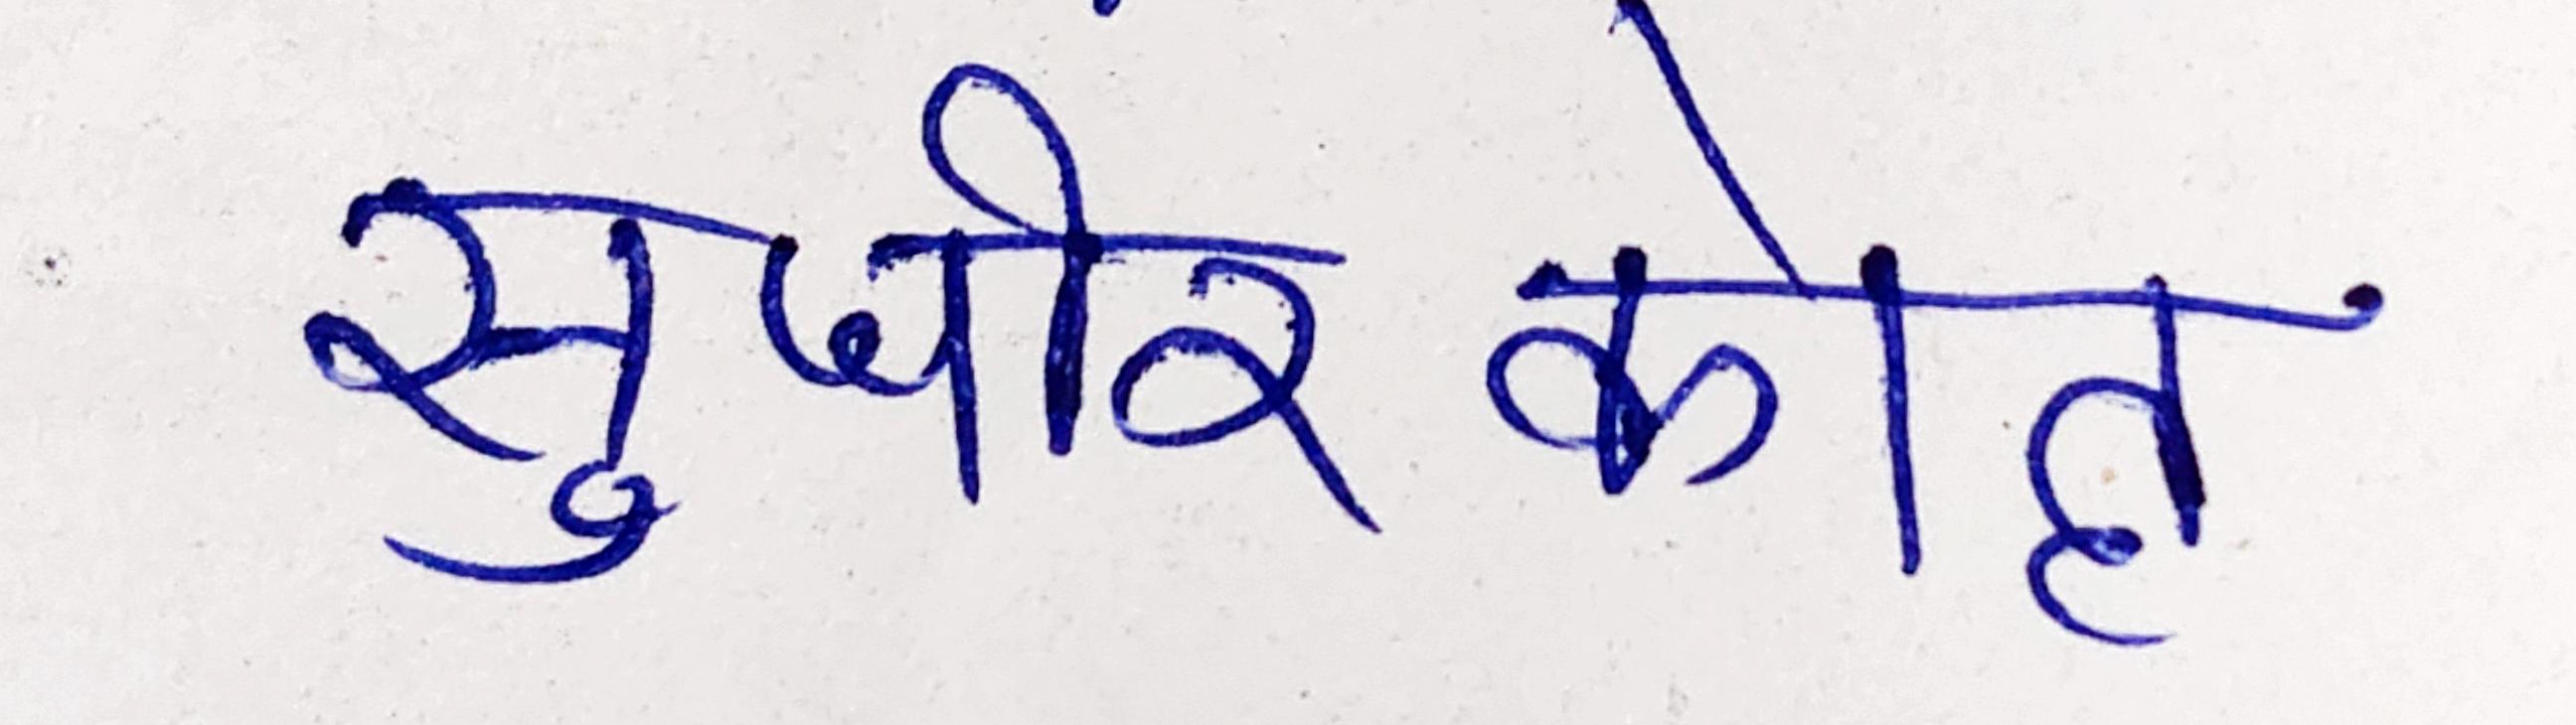 सुधीर कोतृ